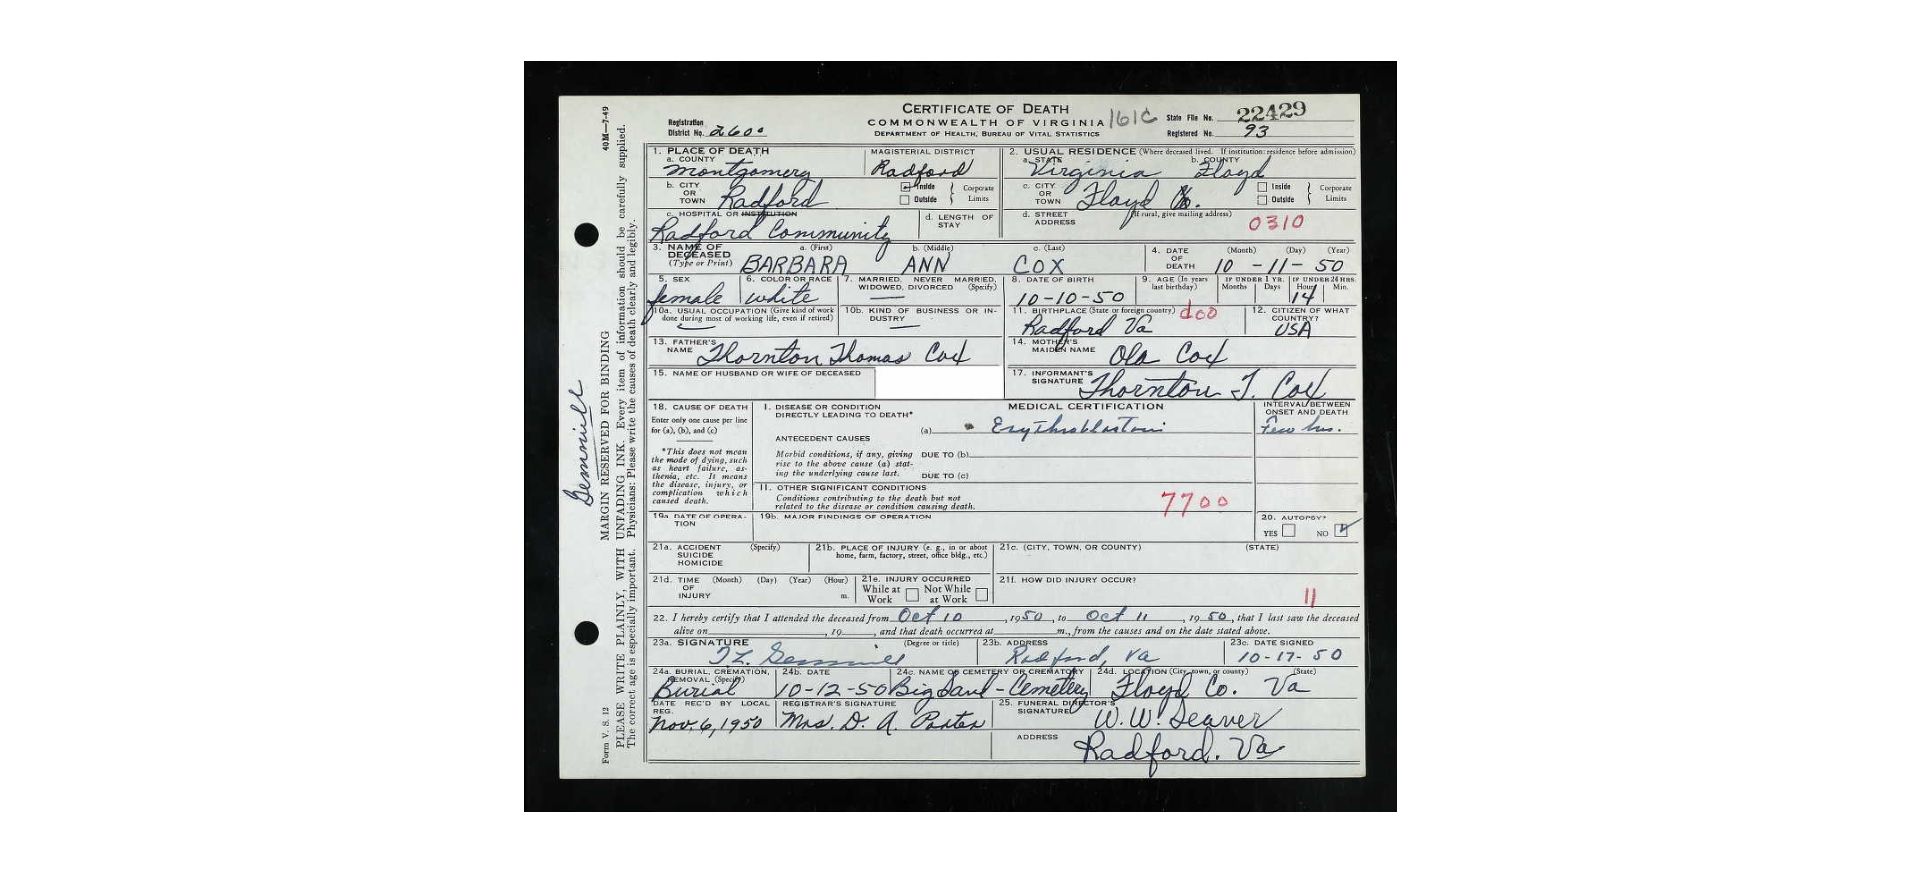 CERTIFICATE OF DEATH
COMMONWEALTH OF VIRGINIA
DEPARTMENT OF HEALTH, BUREAU OF VITAL STATISTICS
161C
State File No. 22429
Registered No. 93
Registration
District No. 2600
1. PLACE OF DEATH
a. COUNTY
Montgomery
MAGISTERIAL DISTRICT
Radford
2. USUAL RESIDENCE (Where deceased lived. If institution: residence before admission)
a. STATE
Virginia
b. COUNTY
Floyd
b. CITY
OR
TOWN
Radford
Inside
Outside
Corporate
Limits
c. CITY
OR
TOWN
Floyd Co.
Inside
Outside
Corporate
Limits
c. HOSPITAL OR INSTITUTION
Radford Community
d. LENGTH OF
STAY
d. STREET
ADDRESS
(If rural, give mailing address)
0310
3. NAME OF
DECEASED
(Type or Print)
a. (First)
BARBARA
b. (Middle)
ANN
c. (Last)
COX
4. DATE
OF
DEATH
(Month) (Day) (Year)
10 - 11 - 50
5. SEX
female
6. COLOR OR RACE
white
7. MARRIED, NEVER MARRIED,
WIDOWED, DIVORCED (Specify)
8. DATE OF BIRTH
10-10-50
9. AGE (In years
last birthday)
IF UNDER 1 YR.
Months Days
IF UNDER 24 HRS.
Hours Min.
14
10a. USUAL OCCUPATION (Give kind of work
done during most of working life, even if retired)
10b. KIND OF BUSINESS OR IN-
DUSTRY
11. BIRTHPLACE (State or foreign country)
Radford Va
12. CITIZEN OF WHAT
COUNTRY?
USA
13. FATHER'S
NAME
Thornton Thomas Cox
14. MOTHER'S
MAIDEN NAME
Ola Cox
15. NAME OF HUSBAND OR WIFE OF DECEASED
17. INFORMANT'S
SIGNATURE
Thornton T. Cox
18. CAUSE OF DEATH
Enter only one cause per line
for (a), (b), and (c)
*This does not mean
the mode of dying, such
as heart failure, as-
thenia, etc. It means
the disease, injury, or
complication which
caused death.
MEDICAL CERTIFICATION
I. DISEASE OR CONDITION
DIRECTLY LEADING TO DEATH*
(a)
INTERVAL BETWEEN
ONSET AND DEATH
Few hrs.
ANTECEDENT CAUSES
Morbid conditions, if any, giving
rise to the above cause (a) stat-
ing the underlying cause last.
DUE TO (b)
DUE TO (c)
II. OTHER SIGNIFICANT CONDITIONS
Conditions contributing to the death but not
related to the disease or condition causing death.
7700
19a. DATE OF OPERA-
TION
19b. MAJOR FINDINGS OF OPERATION
20. AUTOPSY?
YES NO
21a. ACCIDENT
SUICIDE
HOMICIDE
(Specify)
21b. PLACE OF INJURY (e. g., in or about
home, farm, factory, street, office bldg., etc.)
21c. (CITY, TOWN, OR COUNTY) (STATE)
21d. TIME
OF
INJURY
(Month) (Day) (Year) (Hour)
m.
21e. INJURY OCCURRED
While at
Work
Not While
at Work
21f. HOW DID INJURY OCCUR?
11
22. I hereby certify that I attended the deceased from Oct 10, 1950, to Oct 11, 1950, that I last saw the deceased
alive on , 19 , and that death occurred at m., from the causes and on the date stated above.
23a. SIGNATURE (Degree or title)
23b. ADDRESS
Radford, Va
23c. DATE SIGNED
10-17-50
24a. BURIAL, CREMATION,
REMOVAL (Specify)
Burial
24b. DATE
10-12-50
24c. NAME OF CEMETERY OR CREMATORY
Cemetery
24d. LOCATION (City, town, or county) (State)
Floyd Co. Va
DATE REC'D BY LOCAL
REG.
Nov. 6, 1950
REGISTRAR'S SIGNATURE
Mrs. D. A.
25. FUNERAL DIRECTOR'S
SIGNATURE
W. W. Seaver
ADDRESS
Radford. Va
Form V. S. 12
40M—7-49
MARGIN RESERVED FOR BINDING
PLEASE WRITE PLAINLY, WITH UNFADING INK. Every item of information should be carefully supplied.
The correct age is especially important. Physicians: Please write the causes of death clearly and legibly.